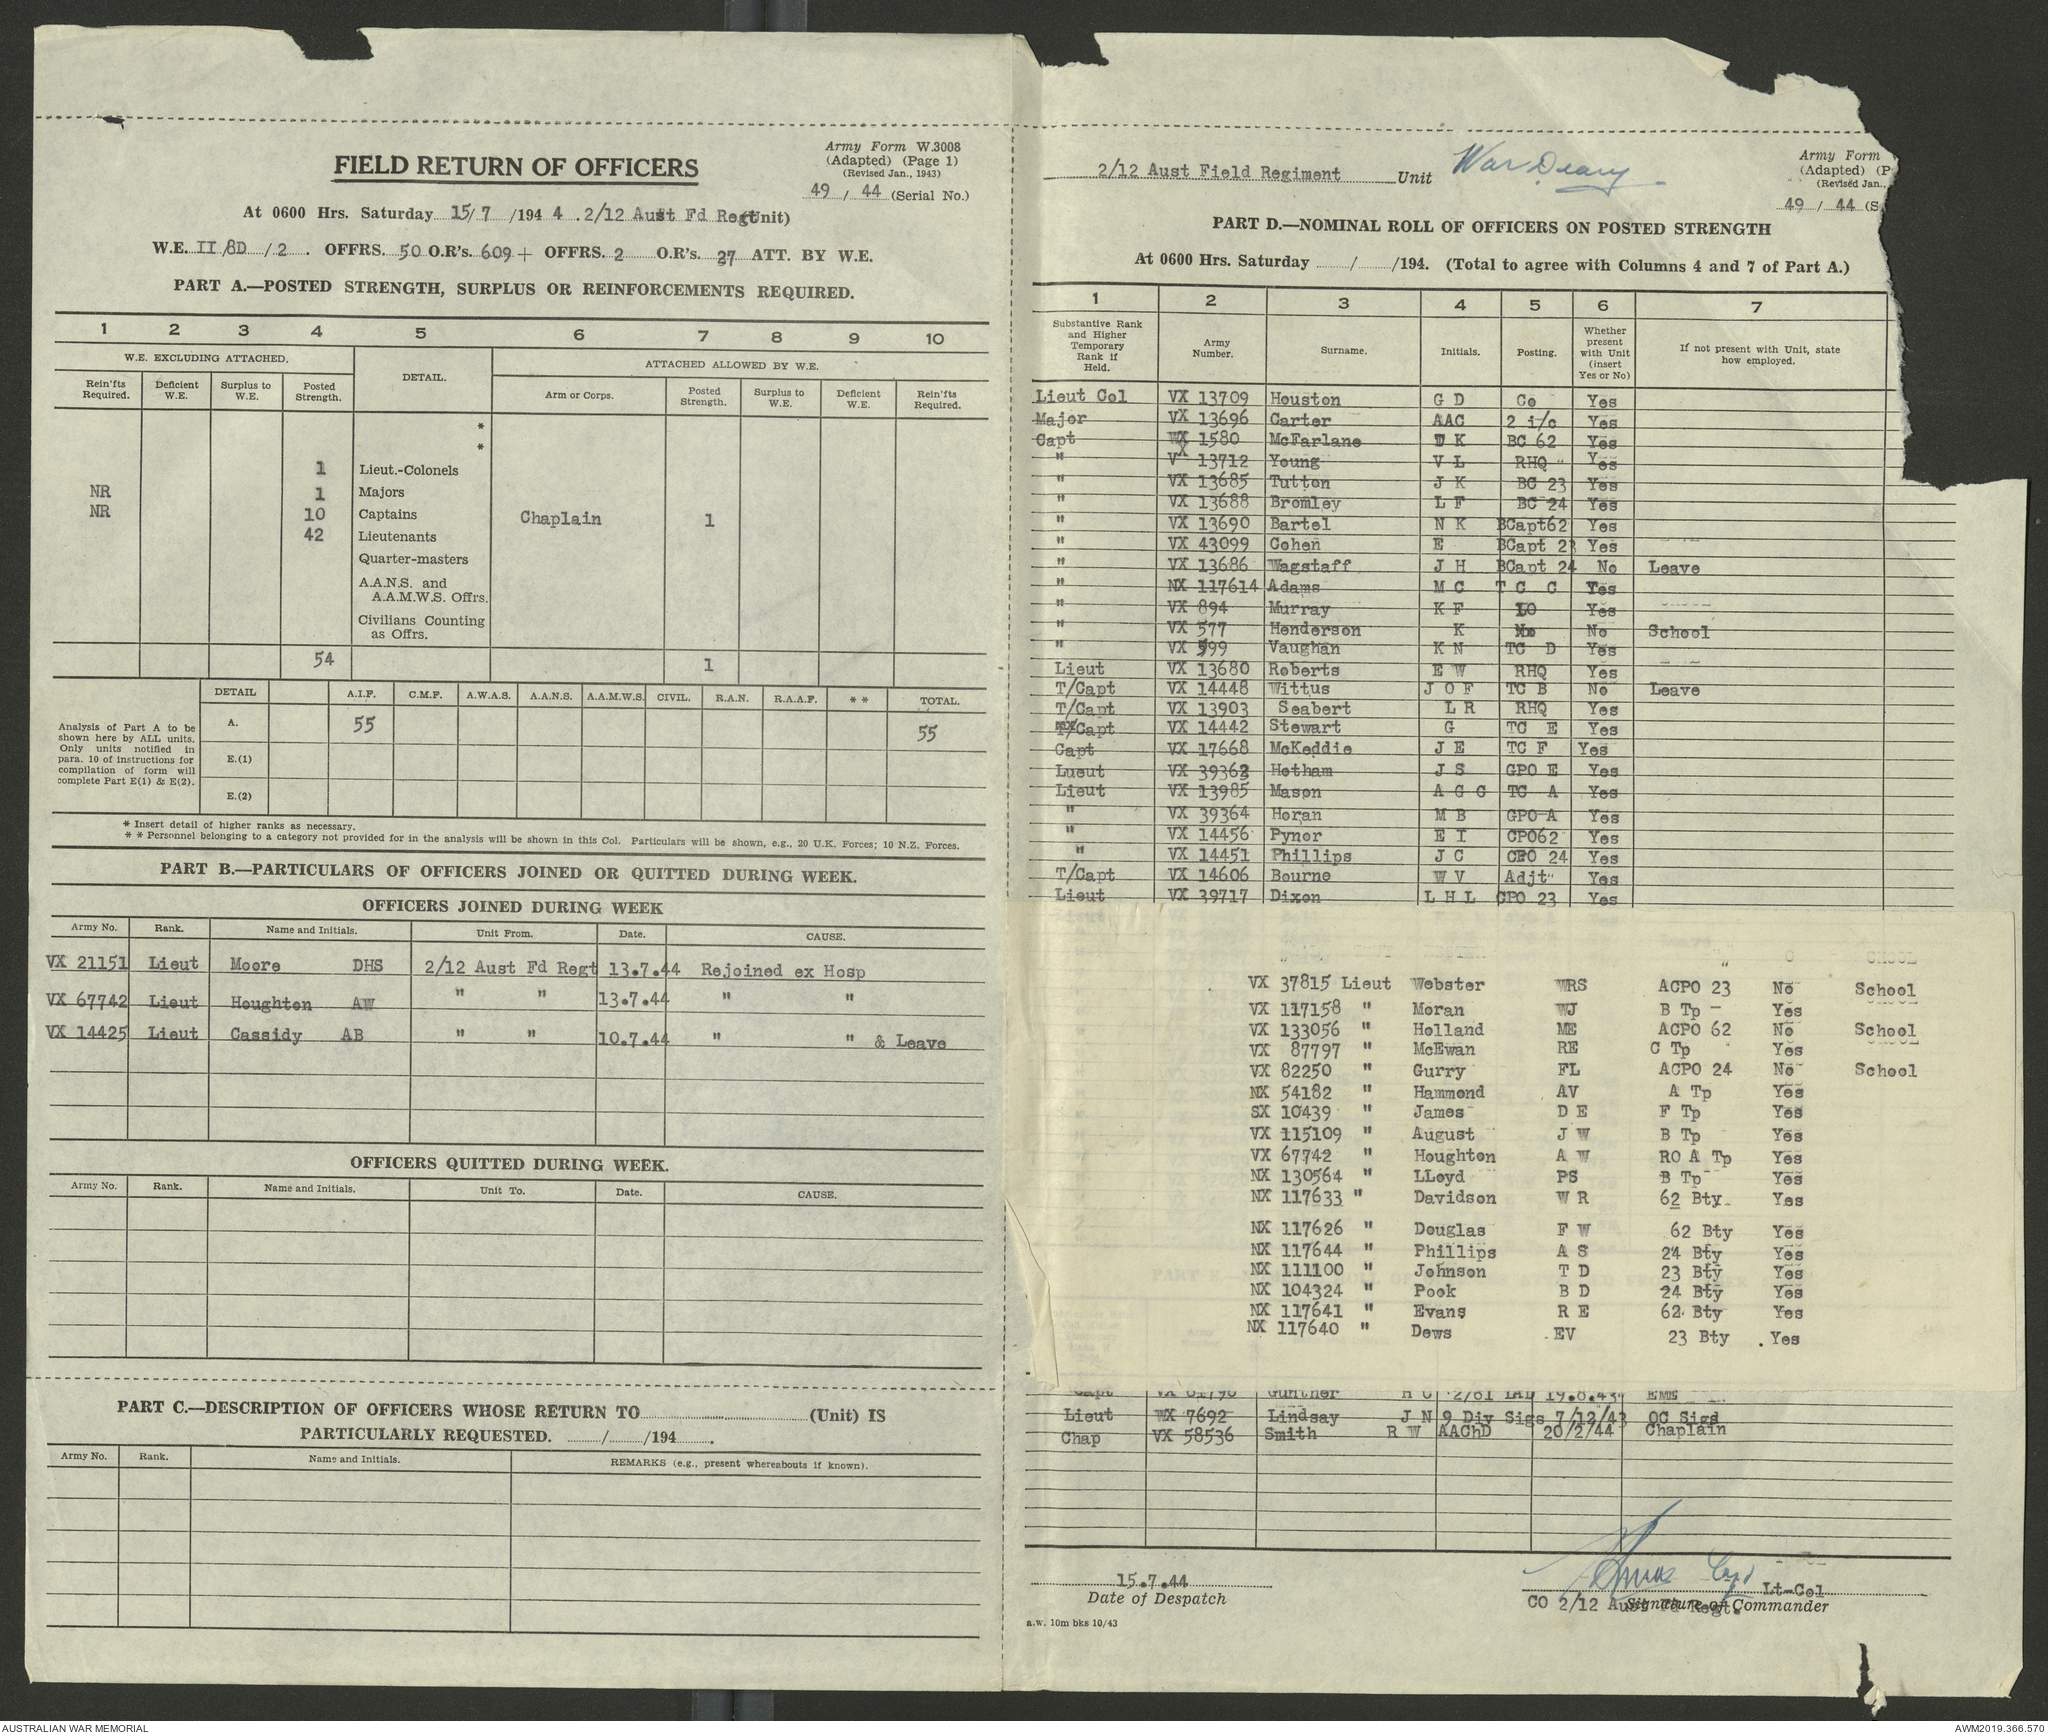 Army Form W.3008
(Adapted) (Page 1)
(Revised Jan., 1943)
FIELD RETURN OF OFFICERS
49 / 44 (Serial No.)
At 0600 Hrs. Saturday 15/7 /194 4 . 2/12 Aust Fd Regt (Unit)
W.E. II/8D /2 . OFFRS. 50 O.R's. 609 + OFFRS. 2 O.R's. 27 ATT. BY W.E.
PART A.—POSTED STRENGTH, SURPLUS OR REINFORCEMENTS REQUIRED.
1 2 3 4 5 6 7 8 9 10
W.E. EXCLUDING ATTACHED. DETAIL. ATTACHED ALLOWED BY W.E.
Rein'fts Required. Deficient W.E. Surplus to W.E. Posted Strength. Arm or Corps. Posted Strength. Surplus to W.E. Deficient W.E. Rein'fts Required.
*
*
1 Lieut.-Colonels
NR 1 Majors
NR 10 Captains Chaplain 1
42 Lieutenants
Quarter-masters
A.A.N.S. and
A.A.M.W.S. Offrs.
Civilians Counting
as Offrs.
54 1
Analysis of Part A to be shown here by ALL units. Only units notified in para. 10 of instructions for compilation of form will complete Part E(1) & E(2).
DETAIL A.I.F. C.M.F. A.W.A.S. A.A.N.S. A.A.M.W.S. CIVIL. R.A.N. R.A.A.F. * * TOTAL.
A. 55 55
E.(1)
E.(2)
* Insert detail of higher ranks as necessary.
* * Personnel belonging to a category not provided for in the analysis will be shown in this Col. Particulars will be shown, e.g., 20 U.K. Forces; 10 N.Z. Forces.
PART B.—PARTICULARS OF OFFICERS JOINED OR QUITTED DURING WEEK.
OFFICERS JOINED DURING WEEK
Army No. Rank. Name and Initials. Unit From. Date. CAUSE.
VX 21151 Lieut Moore DHS 2/12 Aust Fd Regt 13.7.44 Rejoined ex Hosp
VX 67742 Lieut Houghton AW " " 13.7.44 " "
VX 14425 Lieut Cassidy AB " " 10.7.44 " " & Leave
OFFICERS QUITTED DURING WEEK.
Army No. Rank. Name and Initials. Unit To. Date. CAUSE.
PART C.—DESCRIPTION OF OFFICERS WHOSE RETURN TO (Unit) IS
PARTICULARLY REQUESTED. / /194 .
Army No. Rank. Name and Initials. REMARKS (e.g., present whereabouts if known).
2/12 Aust Field Regiment Unit War Deary
Army Form
(Adapted) (P
(Revised Jan.,
49 / 44 (S
PART D.—NOMINAL ROLL OF OFFICERS ON POSTED STRENGTH
At 0600 Hrs. Saturday / /194. (Total to agree with Columns 4 and 7 of Part A.)
1 2 3 4 5 6 7
Substantive Rank and Higher Temporary Rank if Held. Army Number. Surname. Initials. Posting. Whether present with Unit (insert Yes or No) If not present with Unit, state how employed.
Lieut Col VX 13709 Houston G D Co Yes
Major VX 13696 Carter AAC 2 i/c Yes
Capt WX 1580 McFarlane D K BC 62 Yes
" VX 13712 Young V L RHQ " Yes
" VX 13685 Tutton J K BC 23 Yes
" VX 13688 Bromley L F BC 24 Yes
" VX 13690 Bartel N K BCapt62 Yes
" VX 43099 Cohen E BCapt 23 Yes
" VX 13686 Wagstaff J H BCapt 24 No Leave
" NX 117614 Adams M C T C C Yes
" VX 894 Murray K F LO Yes
" VX 577 Henderson K No School
" VX 599 Vaughan K N TC D Yes
Lieut VX 13680 Roberts E W RHQ Yes
T/Capt VX 14448 Wittus J O F TC B No Leave
T/Capt VX 13903 Seabert L R RHQ Yes
T/Capt VX 14442 Stewart G TC E Yes
Capt VX 17668 McKeddie J E TC F Yes
Lueut VX 39362 Hotham J S GPO E Yes
Lieut VX 13985 Mason A G G TC A Yes
" VX 39364 Horan M B GPO A Yes
" VX 14456 Pyner E I CPO62 Yes
" VX 14451 Phillips J C CPO 24 Yes
T/Capt VX 14606 Bourne W V Adjt" Yes
Lieut VX 39717 Dixon L H L CPO 23 Yes
VX 37815 Lieut Webster WRS ACPO 23 No School
VX 117158 " Moran WJ B Tp Yes
VX 133056 " Holland ME ACPO 62 No School
VX 87797 " McEwan RE C Tp Yes
VX 82250 " Gurry FL ACPO 24 No School
NX 54182 " Hammond AV A Tp Yes
SX 10439 " James D E F Tp Yes
VX 115109 " August J W B Tp Yes
VX 67742 " Houghton A W RO A Tp Yes
NX 130564 " LLoyd PS B Tp Yes
NX 117633 " Davidson W R 62 Bty Yes
NX 117626 " Douglas F W 62 Bty Yes
NX 117644 " Phillips A S 24 Bty Yes
NX 111100 " Johnson T D 23 Bty Yes
NX 104324 " Pook B D 24 Bty Yes
NX 117641 " Evans R E 62 Bty Yes
NX 117640 " Dews EV 23 Bty . Yes
Capt VX 81798 Gunther H C 2/81 LAD 19.8.43 EME
Lieut WX 7692 Lindsay J N 9 Div Sigs 7/12/43 OC Sigs
Chap VX 58536 Smith R W AAChD 20/2/44 Chaplain
15.7.44
Date of Despatch
a.w. 10m bks 10/43
Capt Lt-Col
CO 2/12 Aust Fd Regt.
Signature of Commander
AUSTRALIAN WAR MEMORIAL
AWM2019.366.570